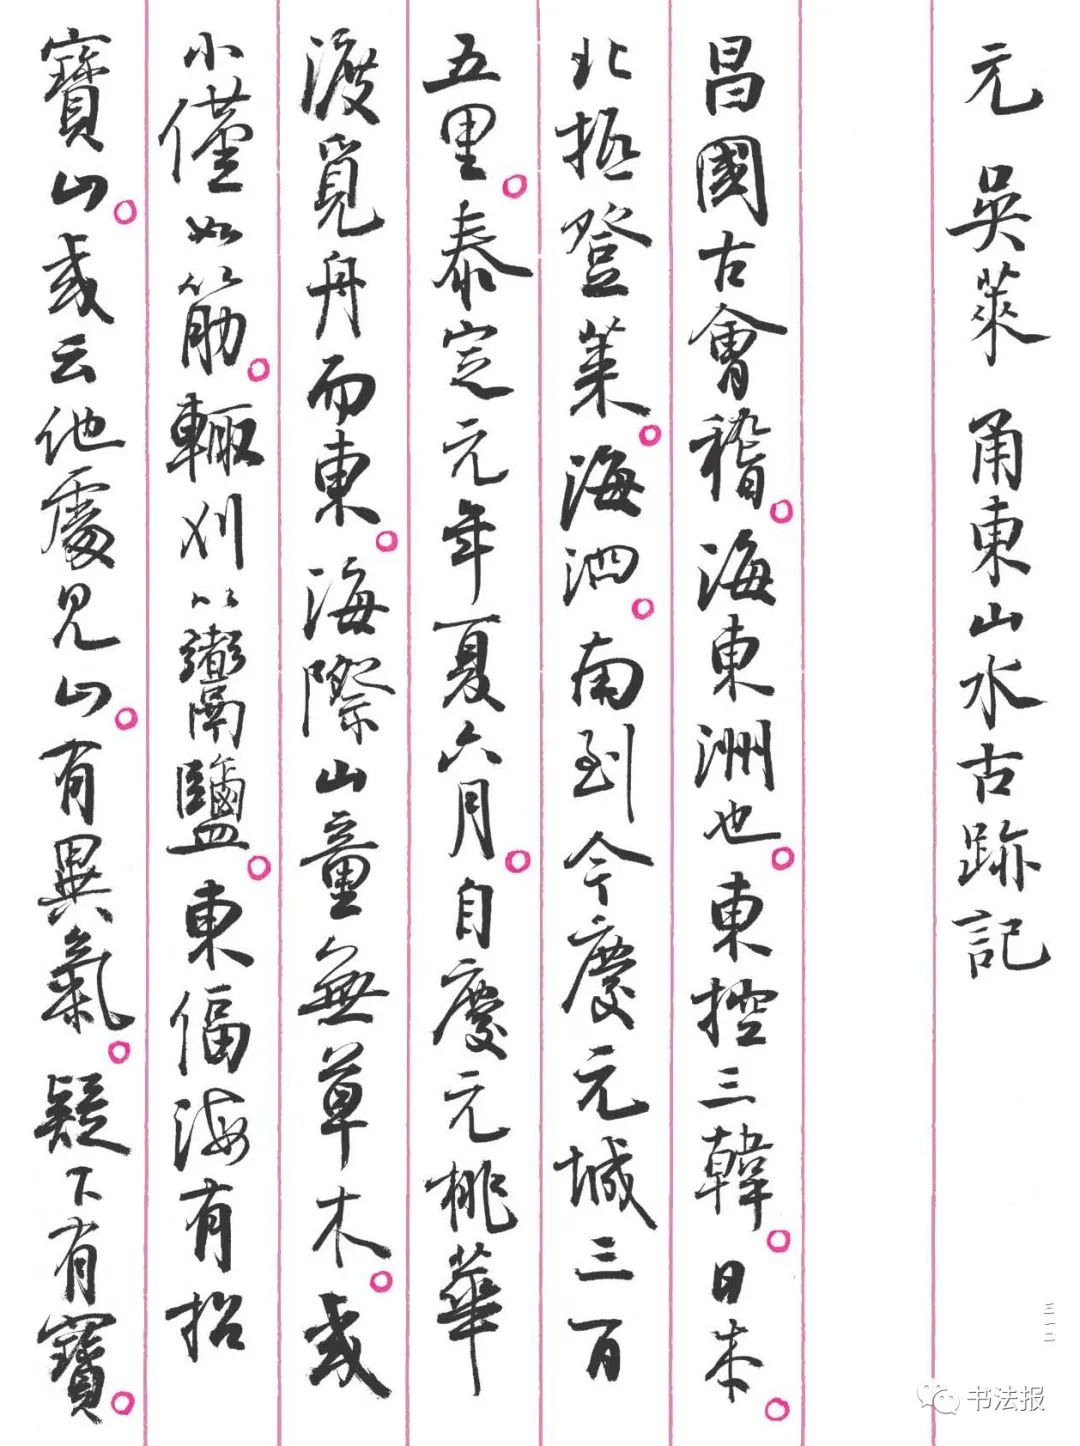 元 吳萊 甬東山水古跡記
昌國古會稽。海東洲也。東控三韓。日本。
北抵登萊。海泗。南到今慶元城三百
五里。泰定元年夏六月。自慶元桃華
渡覓舟而東。海際山童無草木。或
小僅如筋。輒刈以鬻鹽。東偪海有招
寶山。或云他處見山。有異氣。疑下有寶。
三一二
书法报